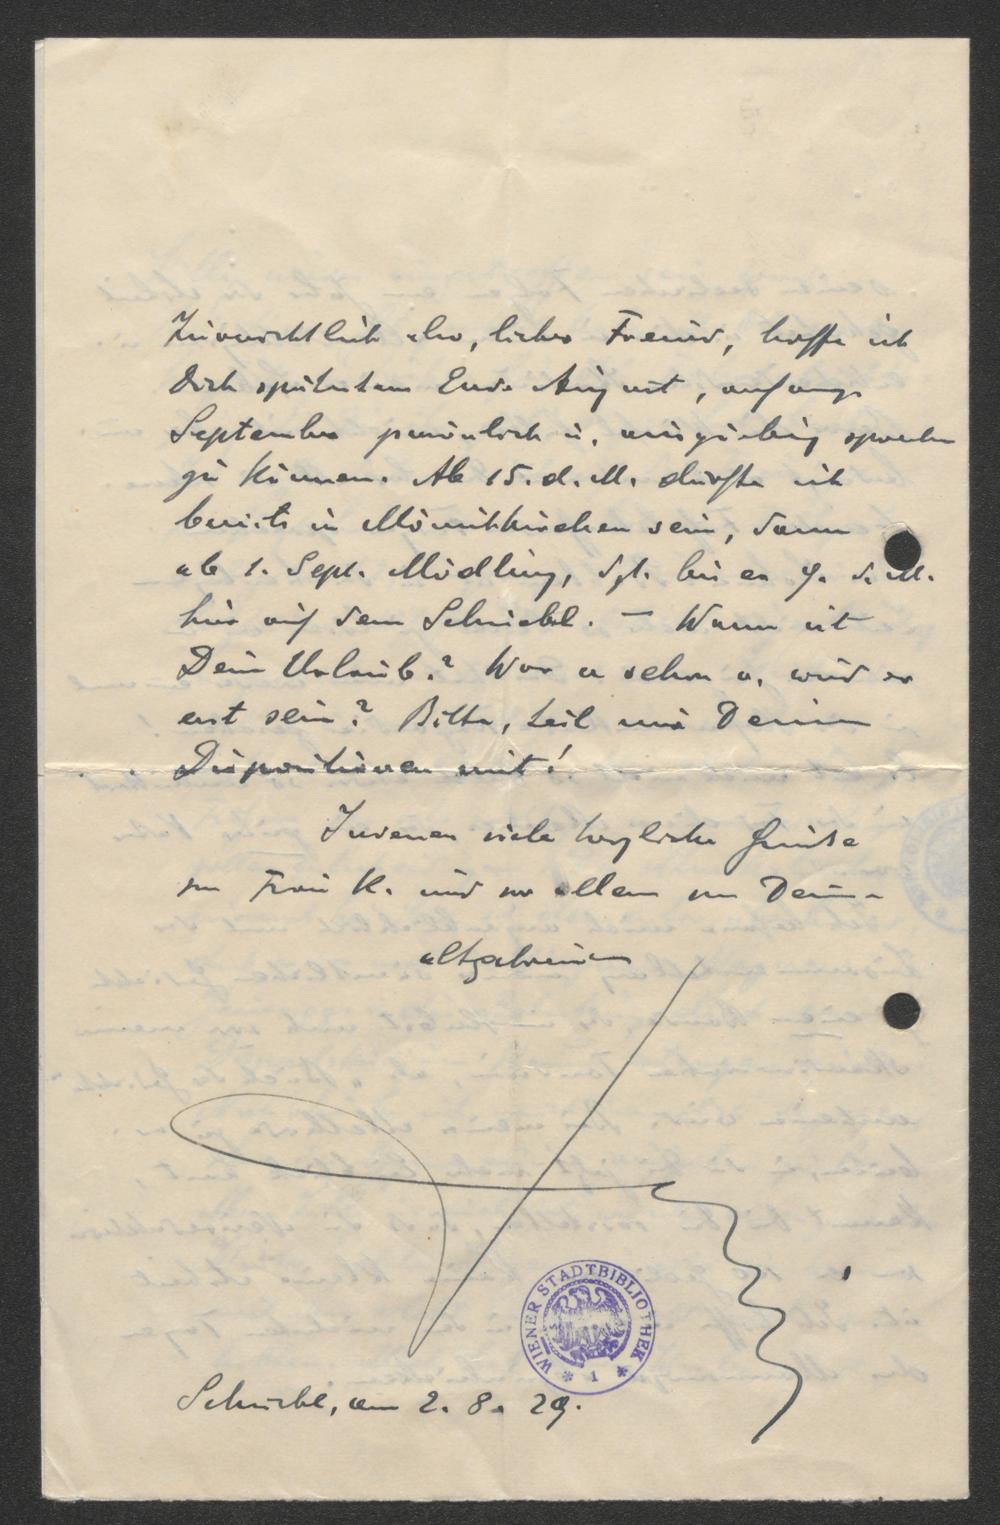 Zuversichtlich also, lieber Freund, hoffe ich
Dich spätestens Ende August, anfangs
September persönlich u. ausgiebig sprechen
zu können. Ab 15. d. M. dürfte ich
bereits in Mönichkirchen sein, dann
ab 1. Sept. Mödling, dzt. bis ca 9. d. M.
hier auf dem Schneebl. – Wann ist
Dein Urlaub? War er schon o. wird er
erst sein? Bitte, teil mir Deine
Dispositionen mit!
Indessen viele herzliche Grüße
an Frau K. und vor allem an Deine
altgetreuen
WIENER STADTBIBLIOTHEK
* 1 *
am 2. 8. 29.